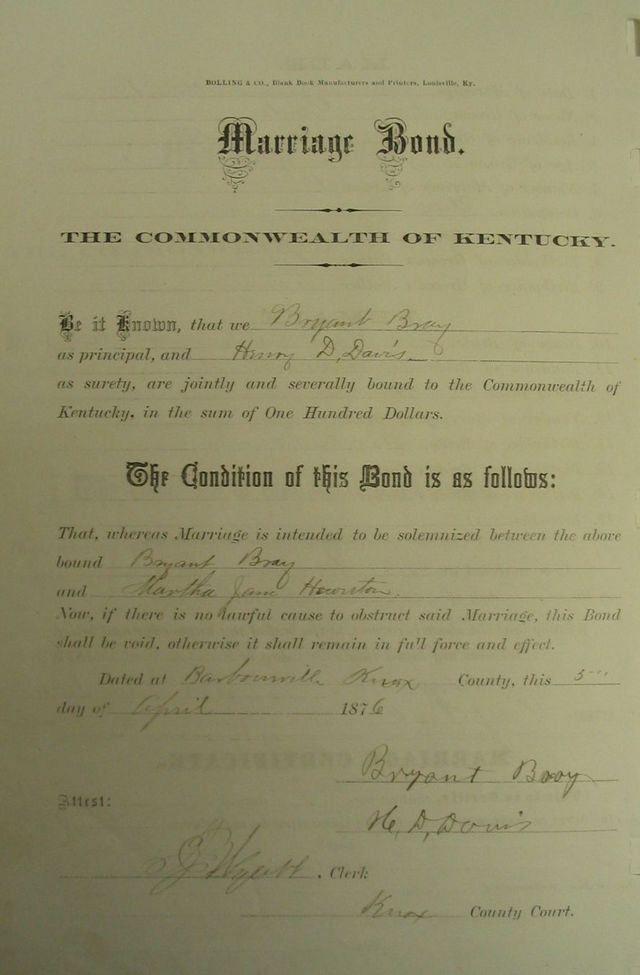 BOLLING & CO., Blank Book Manufacturers and Printers, Louisville, Ky.
Marriage Bond.
THE COMMONWEALTH OF KENTUCKY.
Be it Known, that we Bryant Bray
as principal, and Henry D, Davis
as surety, are jointly and severally bound to the Commonwealth of
Kentucky, in the sum of One Hundred Dollars.
The Condition of this Bond is as follows:
That, whereas Marriage is intended to be solemnized between the above
bound Bryant Bray
and Martha Jane
Now, if there is no lawful cause to obstruct said Marriage, this Bond
shall be void, otherwise it shall remain in full force and effect.
Dated at Barbourville Knox County, this 5
day of April 1876
Bryant Bray
Attest:
H, D, Davis
Clerk
Knox County Court.